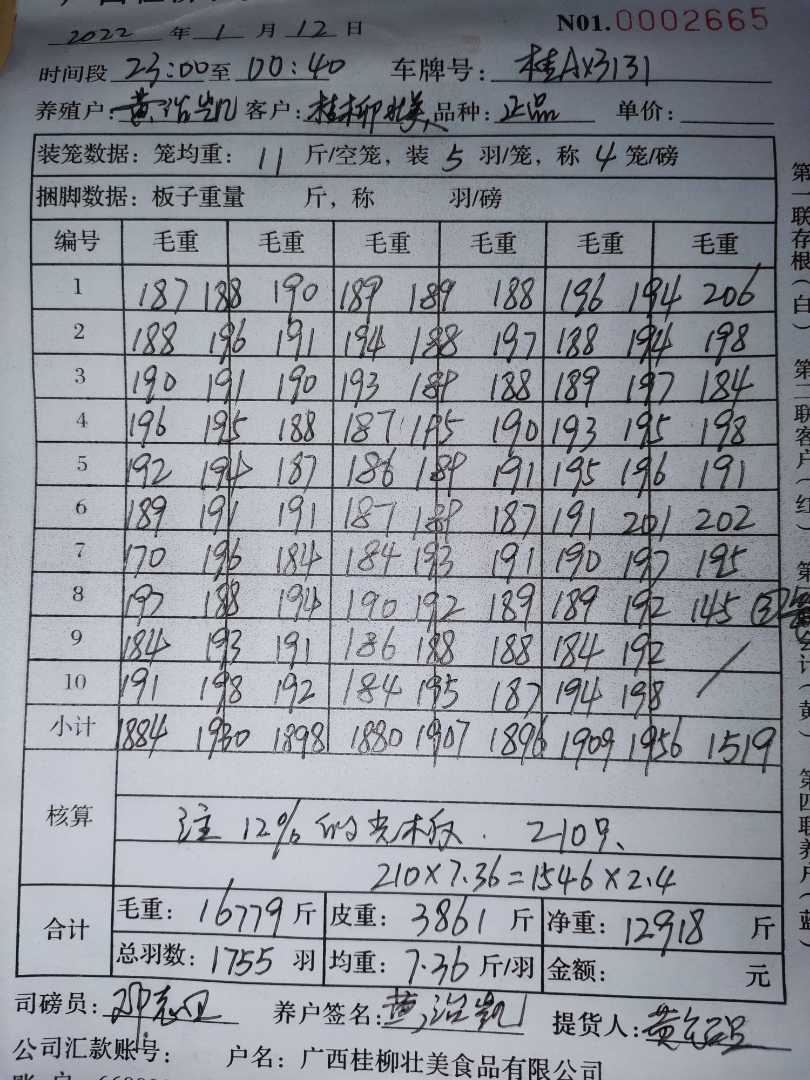 N01.0002665
2022 年 1 月 12 日
时间段 23:00至 00:40 车牌号: 桂AX3131
养殖户: 黄治凯 客户: 桂柳壮美 品种: 正品 单价:
装笼数据: 笼均重: 11 斤/空笼, 装 5 羽/笼, 称 4 笼/磅
捆脚数据: 板子重量 斤, 称 羽/磅
编号 毛重 毛重 毛重 毛重 毛重 毛重
1 187 188 190 189 189 188 196 194 206
2 188 196 191 194 188 197 188 194 198
3 190 191 190 193 189 188 189 197 184
4 196 195 188 187 195 190 193 195 198
5 192 194 187 186 189 191 195 196 191
6 189 191 191 187 189 187 191 201 202
7 170 196 184 184 193 191 190 197 195
8 197 188 194 190 192 189 189 192 145
9 184 193 191 186 188 188 184 192 /
10 191 198 192 184 195 187 194 198
小计 1884 1930 1898 1880 1907 1896 1909 1956 1519
核算
注 12% 的 210只、
210×7.36=1546×2.4
合计
毛重: 16779 斤 皮重: 3861 斤 净重: 12918 斤
总羽数: 1755 羽 均重: 7.36 斤/羽 金额: 元
司磅员: 养户签名: 黄治凯 提货人:
公司汇款账号: 户名: 广西桂柳壮美食品有限公司
第一联存根(白) 第二联客户(红) 第 会计(黄) 第四联养户(蓝)